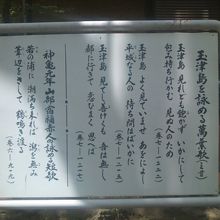 玉津島を詠める万葉歌
玉津島 見れども飽かず いかにして
包み持ち行かむ 見ぬ人のため
（巻七－一二二二）
玉津島 よく見ていませ あをによし
平城なる人の 待ち問はばいかに
（巻七－一二一五）
玉津島 見てし善けくも 吾は無し
都に行きて 恋ひまく 思へば
（巻七－一二一七）
神亀元年 山部宿禰赤人の詠める短歌
若の浦に 潮満ち来れば 潟を無み
葦辺をさして 鶴鳴き渡る
（巻六－九一九）